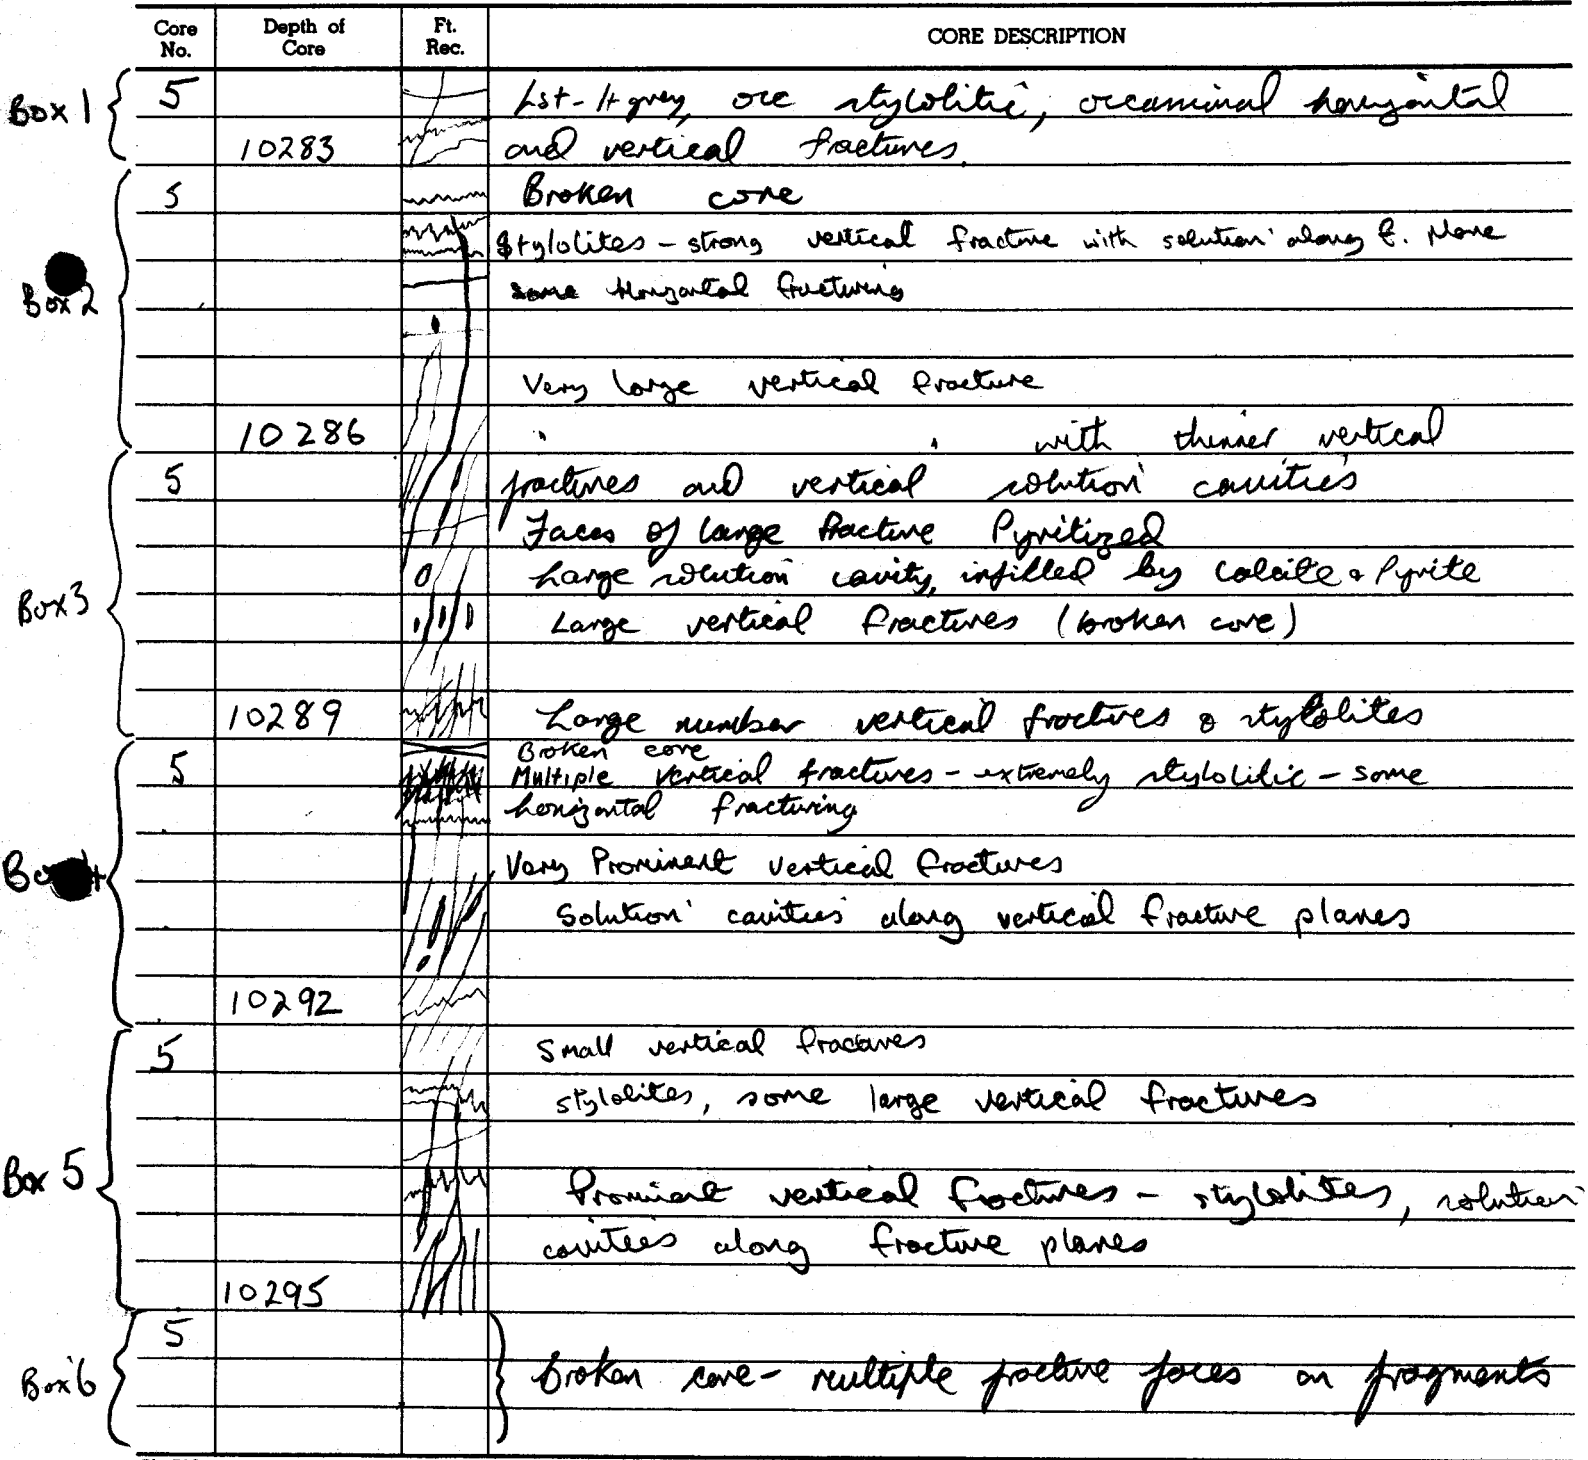 Core No. Depth of Core Ft. Rec. CORE DESCRIPTION
Box 1 5 Lst - lt grey, occ stylolitic, occasional horizontal
10283 and vertical fractures.
5 Broken core
Stylolites - strong vertical fracture with solution along f. plane
Box 2 some Horizontal fracturing
Very large vertical fracture
10286 " " with thinner vertical
5 fractures and vertical solution cavities
Faces of large fracture Pyritized
Large solution cavity, infilled by calcite & Pyrite
Box 3 Large vertical fractures (broken core)
10289 Large number vertical fractures & stylolites
Broken core
5 Multiple vertical fractures - extremely stylolitic - some
horizontal fracturing
Box 4 Very Prominent vertical fractures
Solution cavities along vertical fracture planes
10292
5 Small vertical fractures
stylolites, some large vertical fractures
Box 5 Prominent vertical fractures - stylolites, solution
cavities along fracture planes
10295
5
Box 6 Broken core - multiple fracture faces on fragments